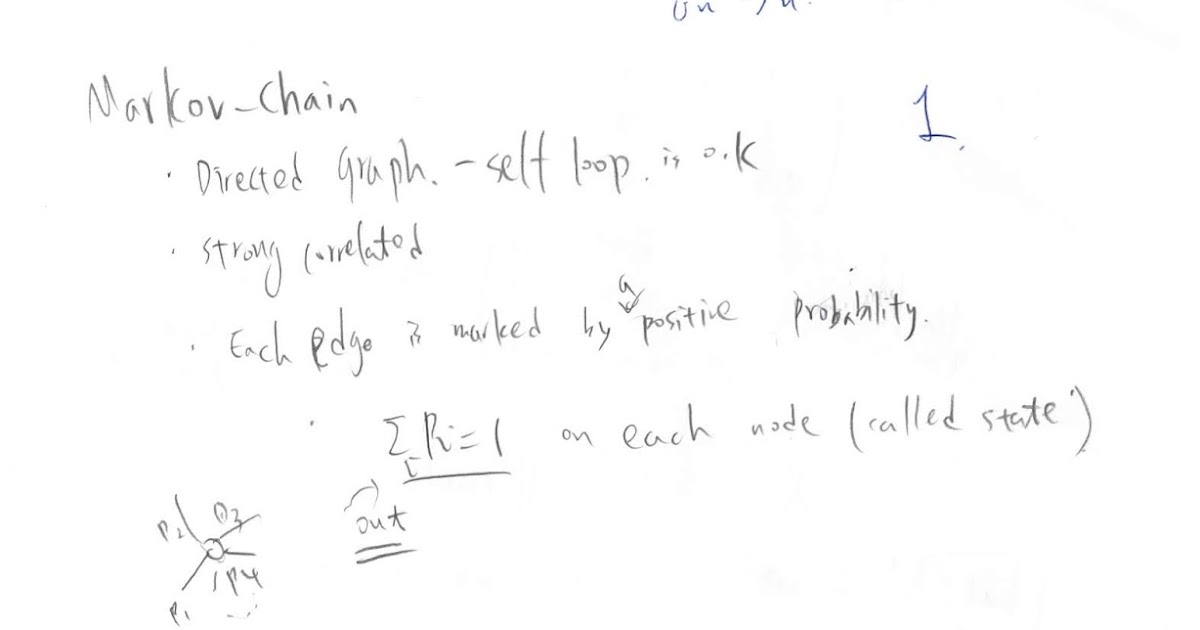 Markov-Chain
1.
· Directed graph. - self loop. is o.k
· strong correlated
a
· Each edge is marked by positive probability.
· ∑ Pi = 1 on each node (called state)
i
P2 P3
out
P4
P1